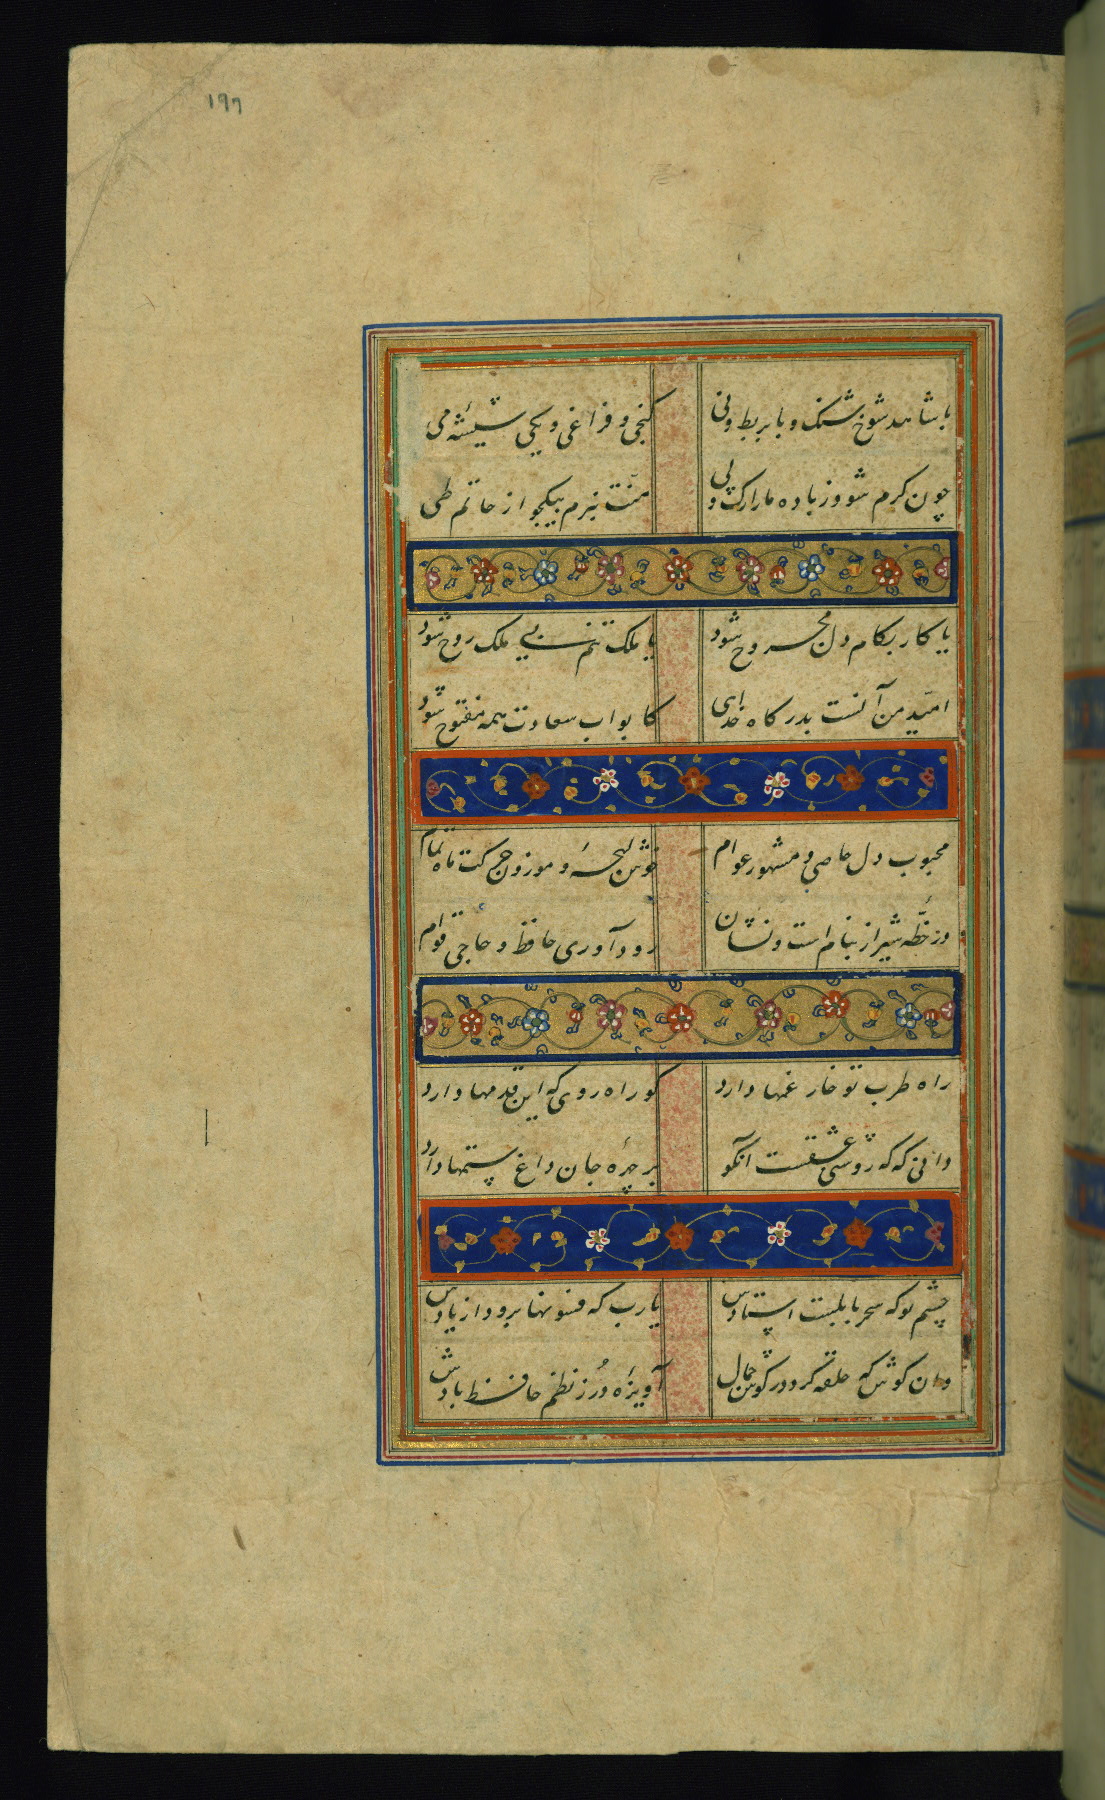 ۱۹۷
با شاهد شوخ شنک و با بربط و نی
کنجی و فراغی و یکی شیشهٔ می
چون کرم شود ز باده ما را رک و پی
منّت نبرم بیکجو از حاتم طی
یا کار بکام دل مجروح شود
یا ملک تنم بی ملک روح شود
امّید من آنست بدرکاه خدای
کابواب سعادت همه مفتوح شود
محبوب دل خاص و مشهور عوام
خوش لهجهٔ و موزون حرکت ماه تمام
در خطّه شیراز بنام است و نشان
رودآوری حافظ و حاجی قوام
راه طرب تو خار غمها دارد
کو راه روی که این قدمها دارد
دانی که که روشن عشقست آنکو
بر چهرهٔ جان داغ ستمها دارد
چشم تو که سحر بابلست استادش
یا رب که فسونها برود از یادش
وان کوش که حلقه کرد در کوش جمال
آویزهٔ دُر ز نظم حافظ بادش